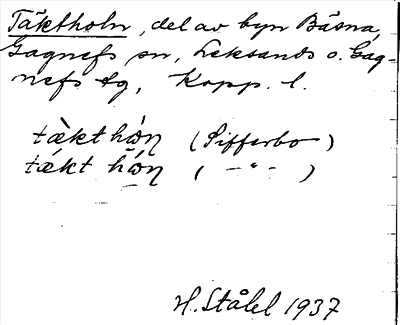 Täktholn, del av byn Bäsna,
Gagnefs sn, Leksands o. Gag-
nefs tg, Kopp. l.
tæ̀kt hɷ̀n (Sifferbo)
tækt hɷ́n ( -"- )
H. Stålel 1937